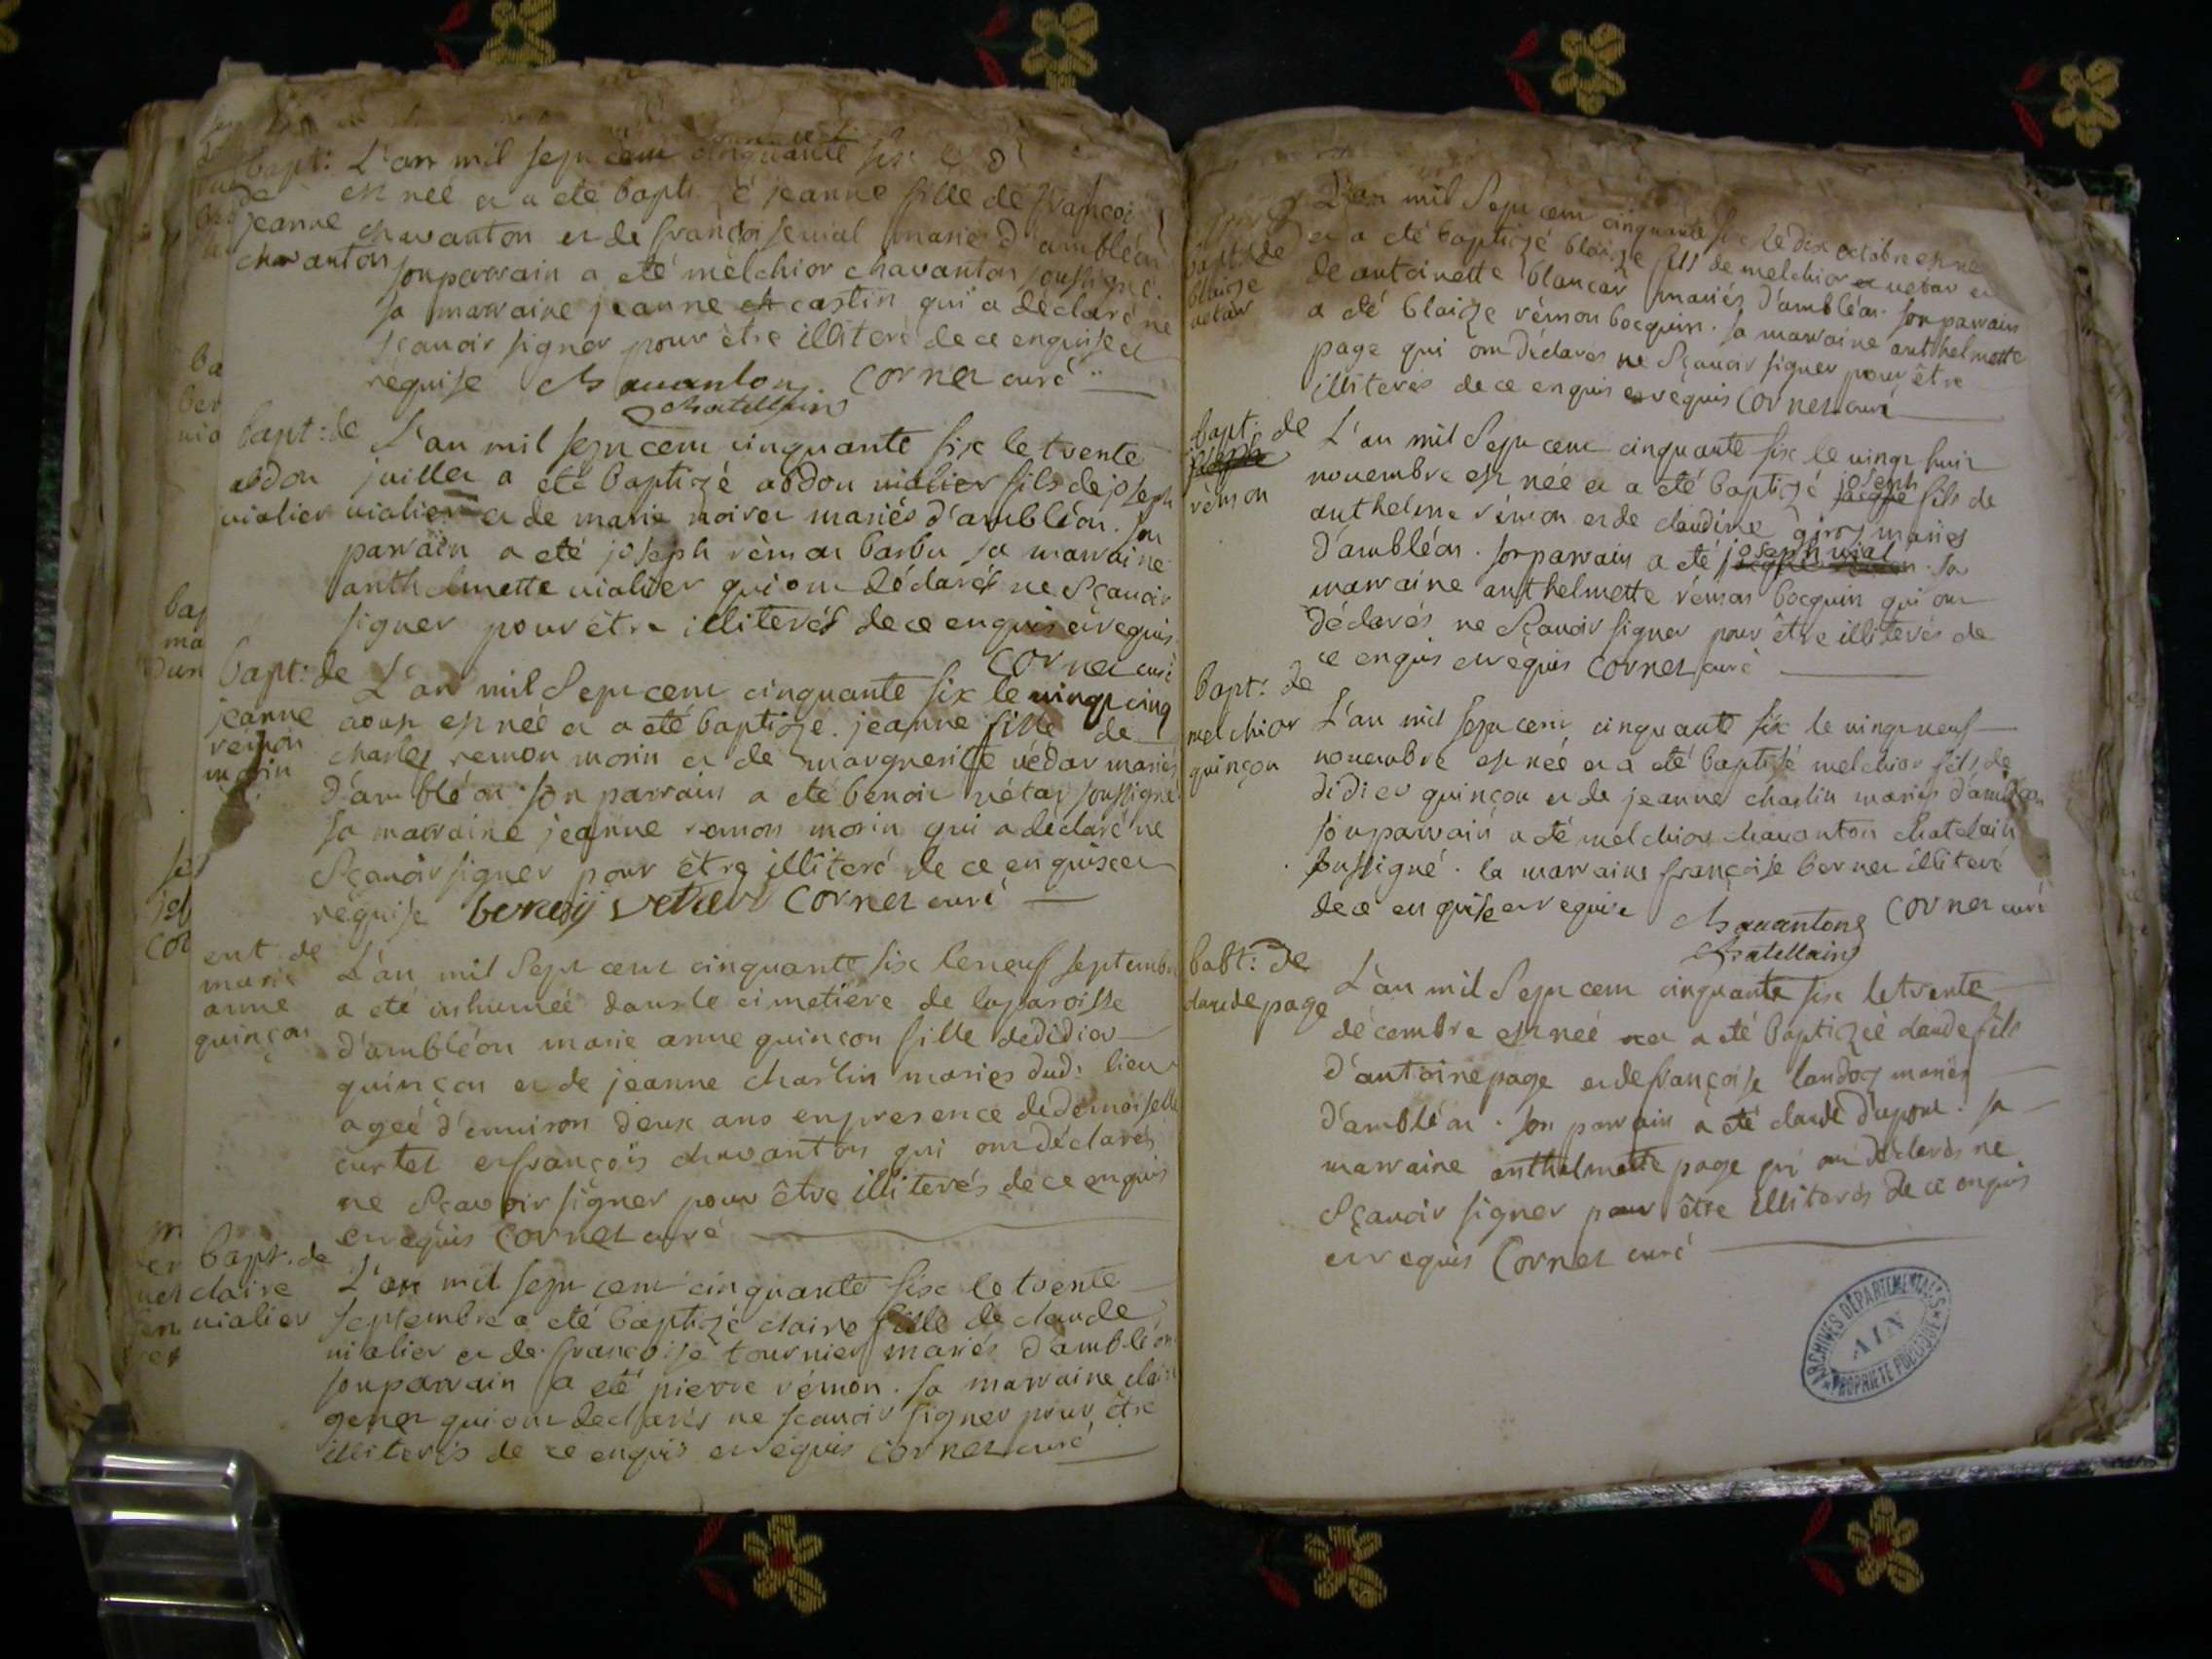 bapt: de
jeanne
chavanton
L'an mil sept cent cinquante six le
est née et a eté bapti é jeanne fille de françoi
chavanton et de françoise vial mariés d'ambléon
son parrain a eté melchior chavanton soussigné.
sa marraine jeanne castin qui a déclaré ne
sçavoir signer pour être illiteré de ce enquise et
requise Chavanton. cornet curé
chatellain
bapt: de
abdon
vialier
L'an mil sept cent cinquante six le trente
juillet a eté baptizé abdon vialier fils de joseph
vialier et de marie noiret mariés d'ambléon. son
parrain a eté joseph rémon barbu sa marraine
anthelmette vialier qui ont déclarés ne sçavoir
signer pour être illiterés de ce enquis et requis
cornet curé
bapt: de
jeanne
rémon
morin
L'an mil sept cent cinquante six le vingt cinq
aoust est née et a eté baptizé jeanne fille de
charles remon morin et de marguerite védar mariés
d'ambléon son parrain a eté benoit vétar soussigné
sa marraine jeanne remon morin qui a déclaré ne
sçavoir signer pour être illiteré de ce enquise et
requise benoij vetar cornet curé
ent. de
marie
anne
quinçon
L'an mil sept cent cinquante six le neuf septembre
a eté inhumeé dans le cimetiere de la paroisse
d'ambléon marie anne quinçon fille de didier
quinçon et de jeanne charlin mariés dud: lieu
ageé d'environ deux ans en presence de demoiselle
curtet et françois chavanton qui ont déclarés
ne sçavoir signer pour être illiterés de ce enquis
et requis cornet curé
bapt. de
claire
vialier
L'an mil sept cent cinquante six le trente
septembre a eté baptizé claire fille de claude
vialier et de françoise tournier mariés d'ambléon
son parrain a eté pierre rémon. sa marraine claire
genet qui ont declarés ne scavoir signer pour être
illiterés de ce enquis et requis cornet curé
bapt: de
blaize
vetar
L'an mil sept cent cinquante six le dix octobre est né
et a eté baptizé blaize fils de melchior vetar et
de antoinette blancar mariés d'ambléon. son parrain
a eté blaize rémon bocquin. sa marraine anthelmette
page qui ont déclarés ne sçavoir signer pour être
illiterés de ce enquis et requis cornet curé
bapt: de
rémon
L'an mil sept cent cinquante six le vingt huit
novembre est né et a eté baptizé joseph fils de
anthelme rémon et de claudine giroz mariés
d'ambléon. son parrain a eté joseph vial. sa
marraine anthelmette rémon bocquin qui ont
déclarés ne sçavoir signer pour être illiterés de
ce enquis et requis cornet curé
bapt: de
melchior
quinçon
L'an mil sept cent cinquante six le vingt neuf
novembre est né et a eté baptisé melchior fils de
didier quinçon et de jeanne charlin mariés d'ambléon
son parrain a eté melchior chavanton chatelain
soussigné. la marraine françoise bernet illiteré
de ce enquise et requise Chavanton cornet curé
chatellain
babt: de
claude page
L'an mil sept cent cinquante six le trente
décembre est né et a eté baptizé claude fils
d'antoine page et de françoise landoz mariés
d'ambléon. son parrain a eté claude dupont. sa
marraine anthelmette page qui ont déclarés ne
sçavoir signer pour être illiterés de ce enquis
et requis Cornet curé
ARCHIVES DÉPARTEMENTALES
AIN
PROPRIÉTÉ PUBLIQUE